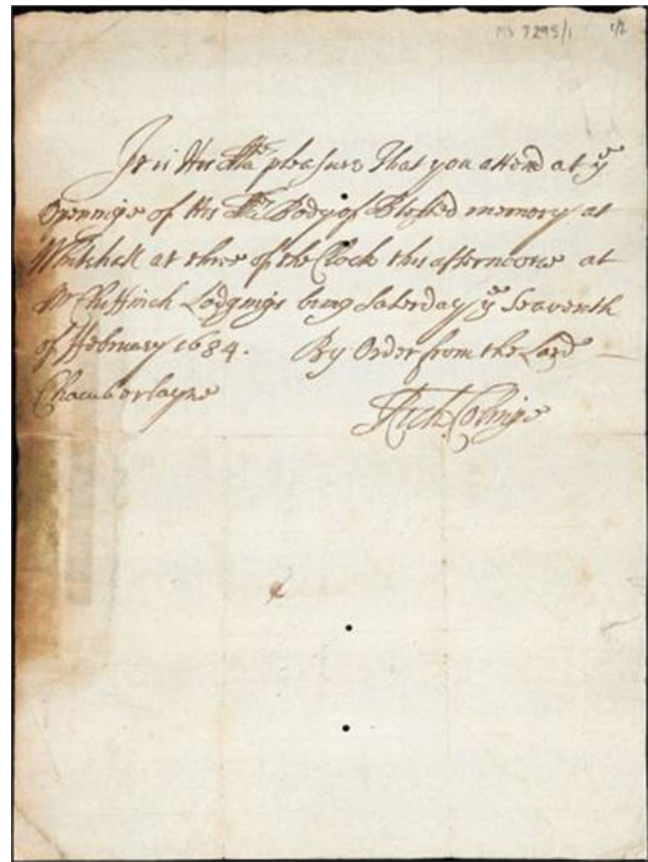 MS 7295/1 1/2
It is His Ma:tie pleasure That you attend at ye
Openinge of His Ma:tis Body of Blessed memory at
Whitehall at three of the Clock this afternoone at
Mr Chiffinch Lodgings being Saterday ye Seaventh
of February 1684. By Order from the Lord
Chamberlayne
Rich: Colinge